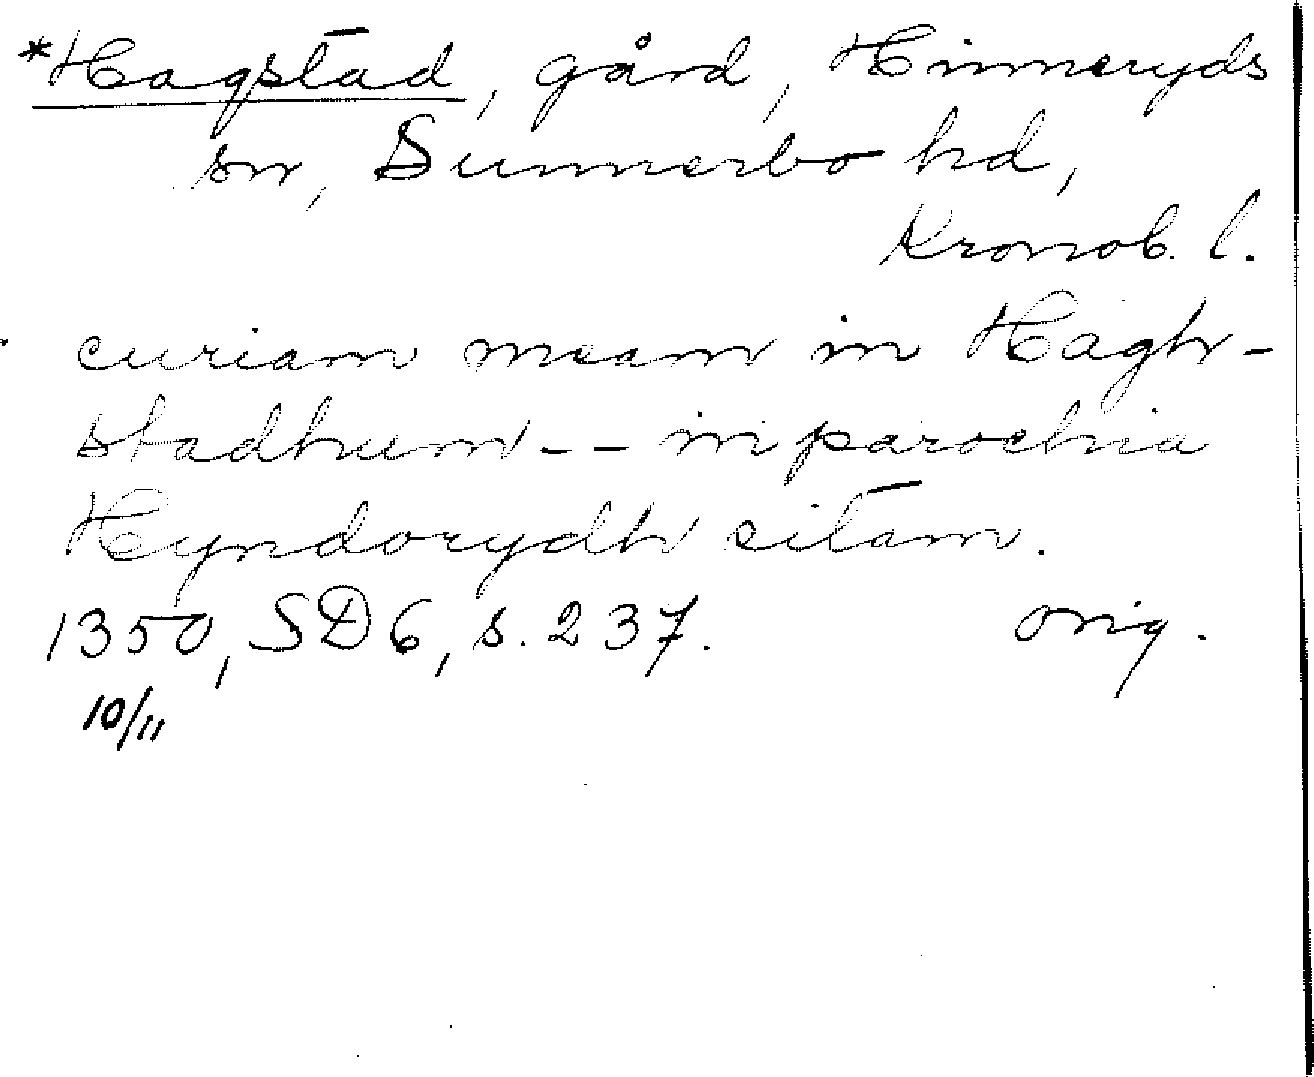 *Hagstad, gård, Hinneryds
sn, Sunnerbo hd,
Kronob. l.
curiam meam in Hagh-
stadhum -- in parochia
Hyndorydh sitam.
1350, SD 6, s. 237. orig.
10/11